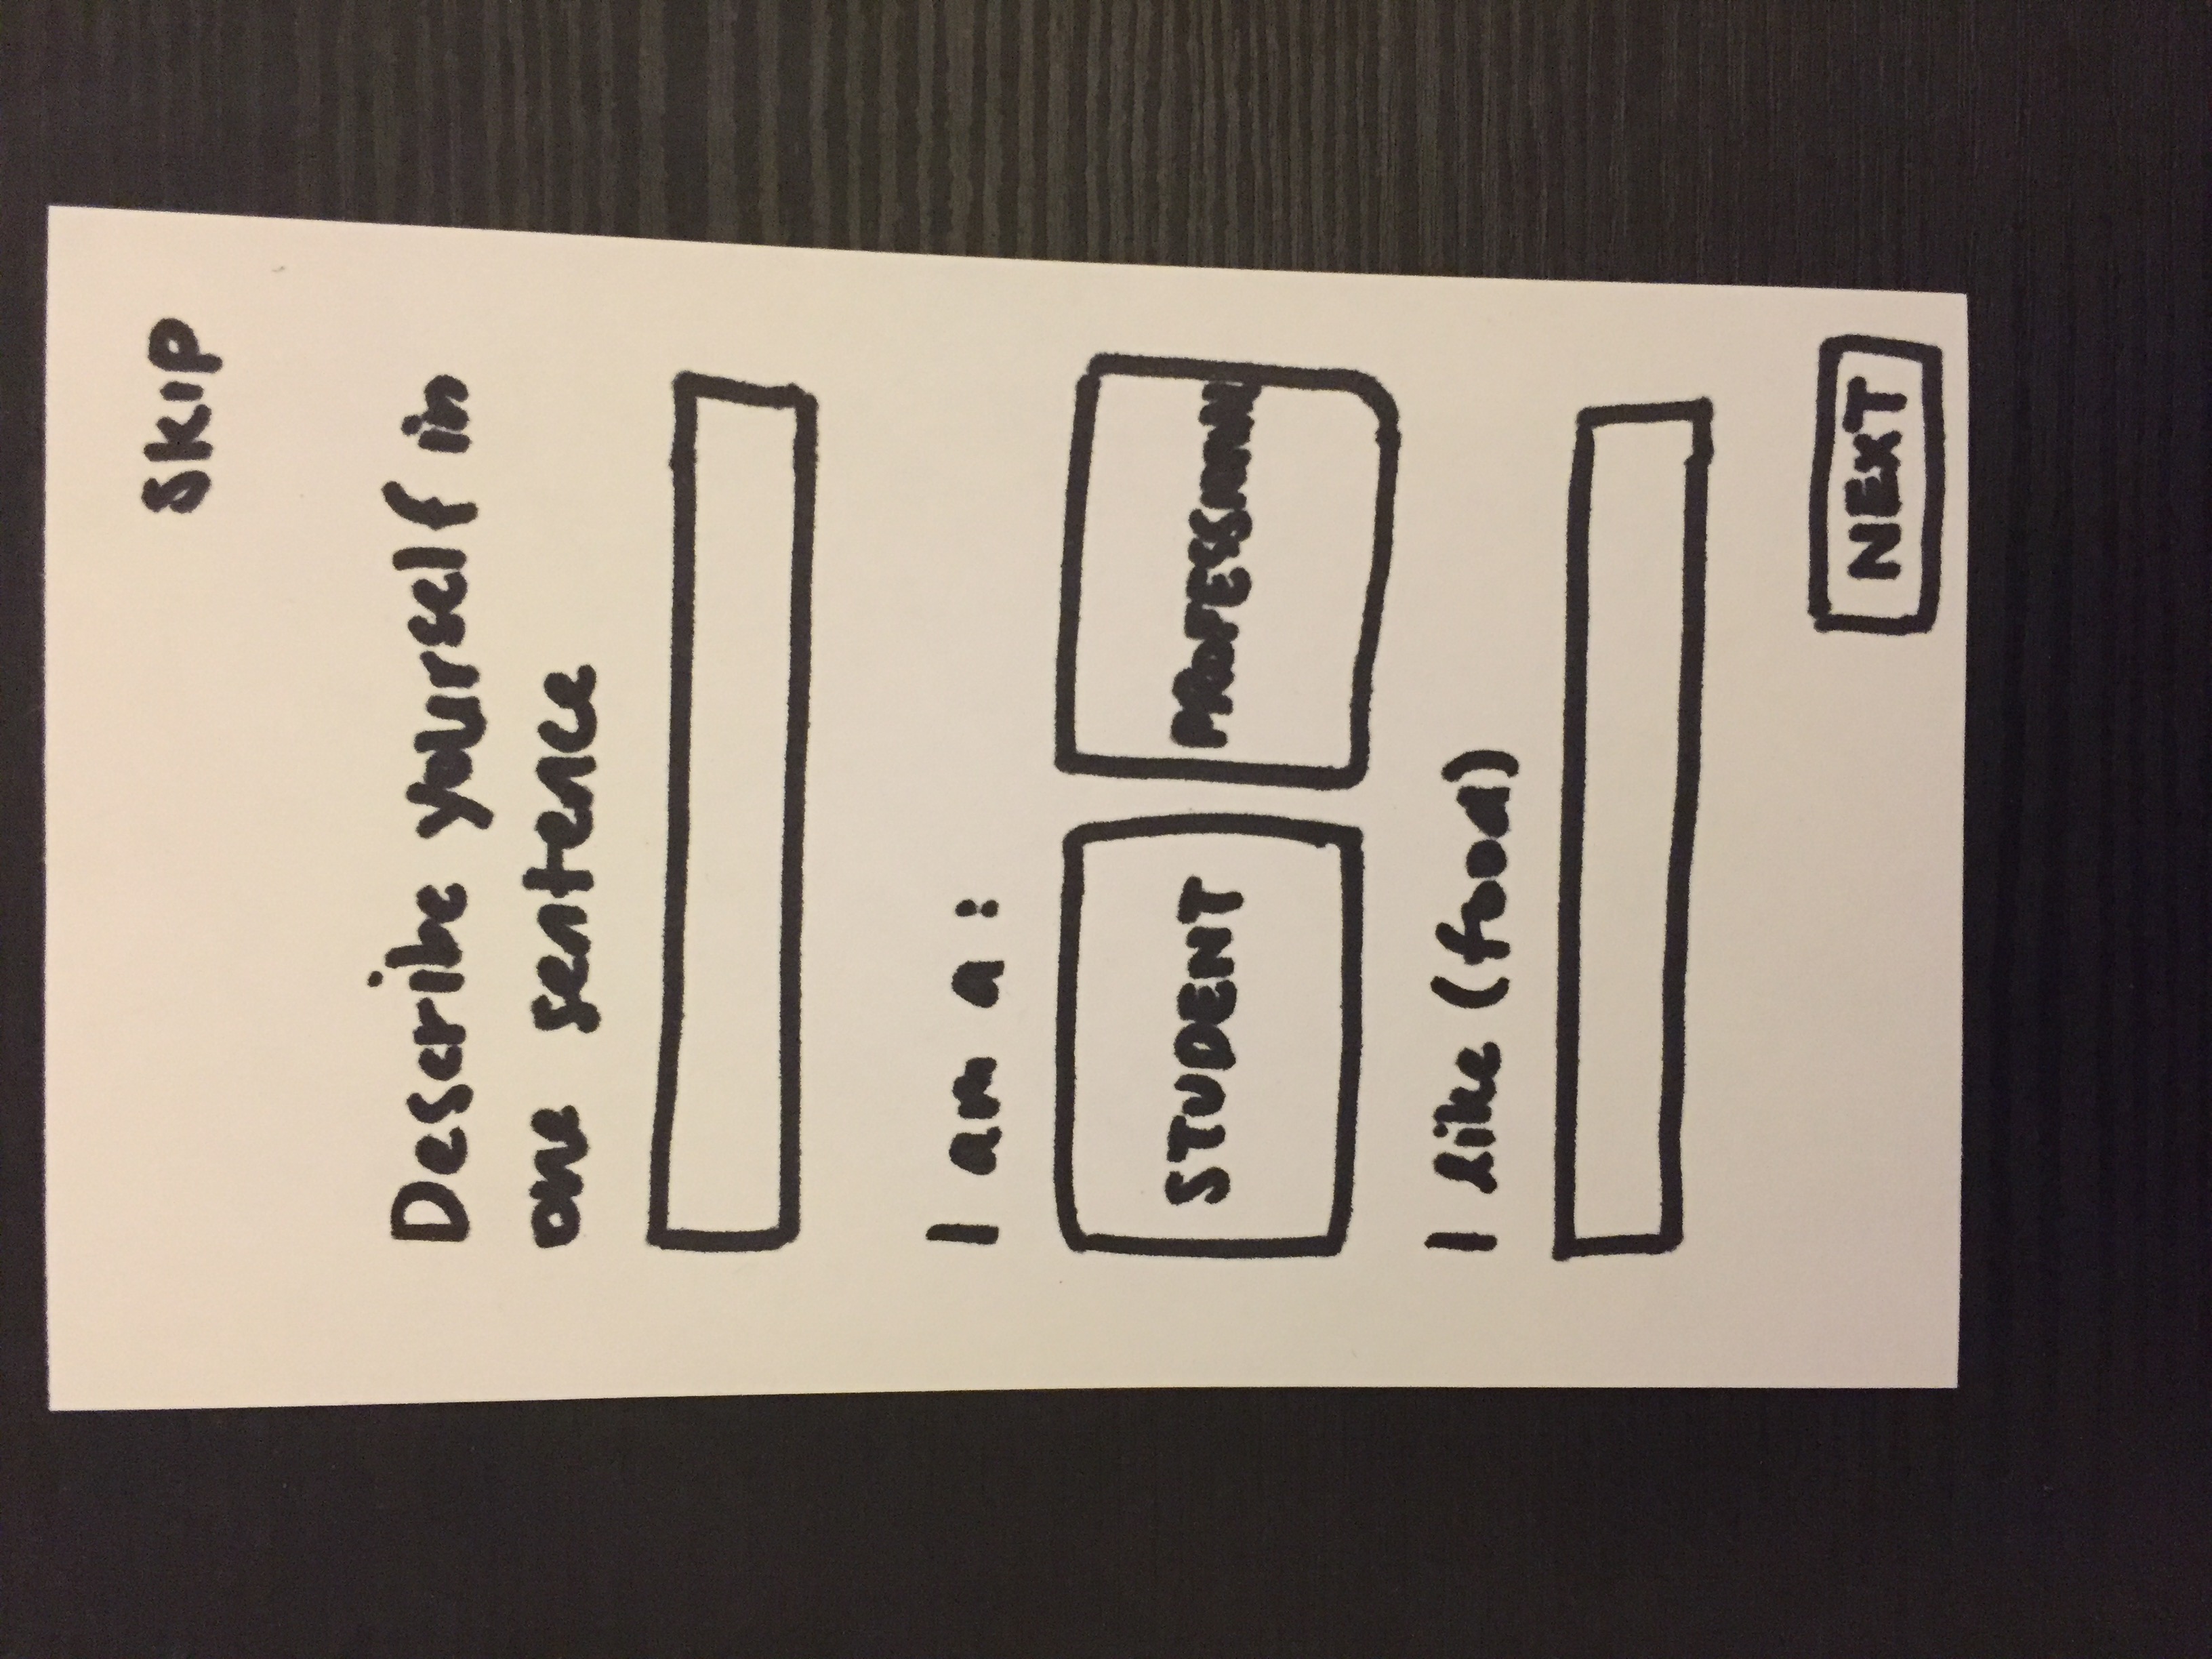 SKIP
Describe yourself in
one sentence
I am a :
STUDENT
PROFESSIONAL
I like (food)
NEXT